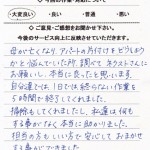 ・大変良い ・良い ・普通 ・悪い
ご意見・ご感想をお聞かせ下さい。
今後のサービス向上に反映させていただきます。
母が亡くなり、アパートの片付けをどうしよう
かと悩んでいた所、調べて
お願いし、本当に良かったと思います。
自分達では、1日では終らない作業を
5時間で終えてくれました。
掃除もしてくれましたし、私達は何も
する事がなく、本当に助かりました。
担当の方も、とても安心しておまかせ
する事ができました。